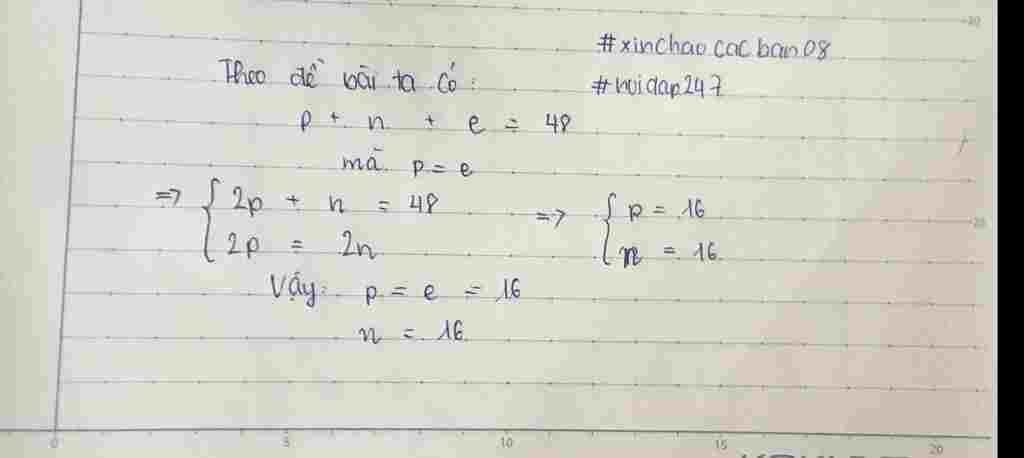 #xinchaocacban08
Theo đề bài ta có:
#hoidap247
p + n + e = 48
mà p = e
=> { 2p + n = 48
2p = 2n
=> { p = 16
n = 16
Vậy: p = e = 16
n = 16
0 5 10 15 20